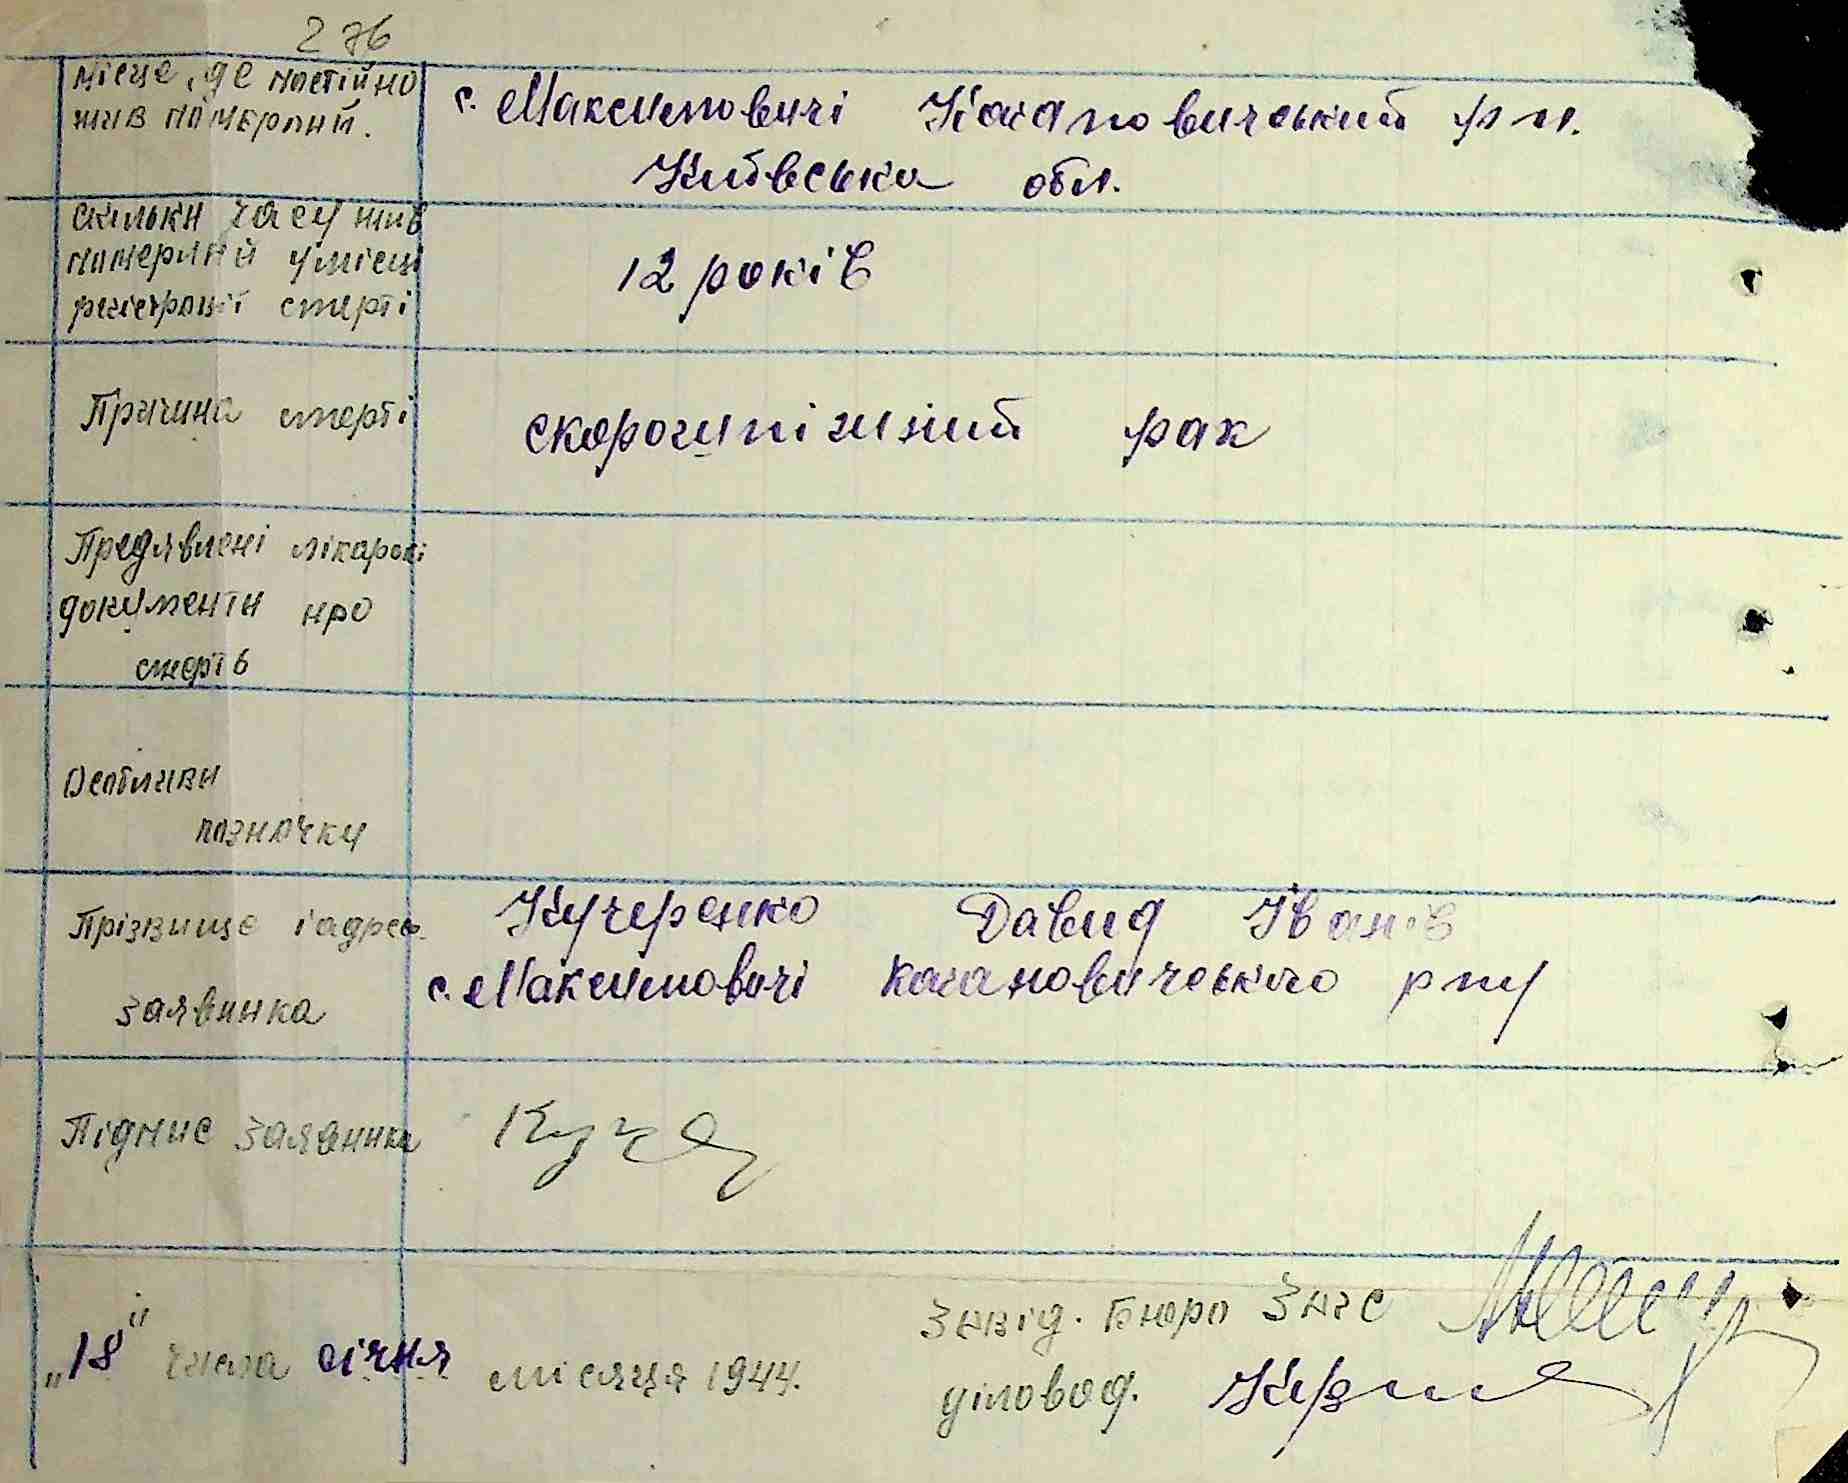 276
місце, де постійно
жив померлий.
с. Максимовичі Кагановичський р-н.
Київська обл.
скільки часу жив
померлий у місці
регістрації смерті
12 років
Причина смерті
скорочипіжний рак
Предявлені лікарскі
документи про
смерть
Особливи
позначки
Прізвище і адрес.
заявника
Кучеренко Давид Іванів
с. Максимовичі Кагановичського р-ну
Підпис заявника
„18" числа січня місяця 1944.
Завід. Бюро Загс
діловод.